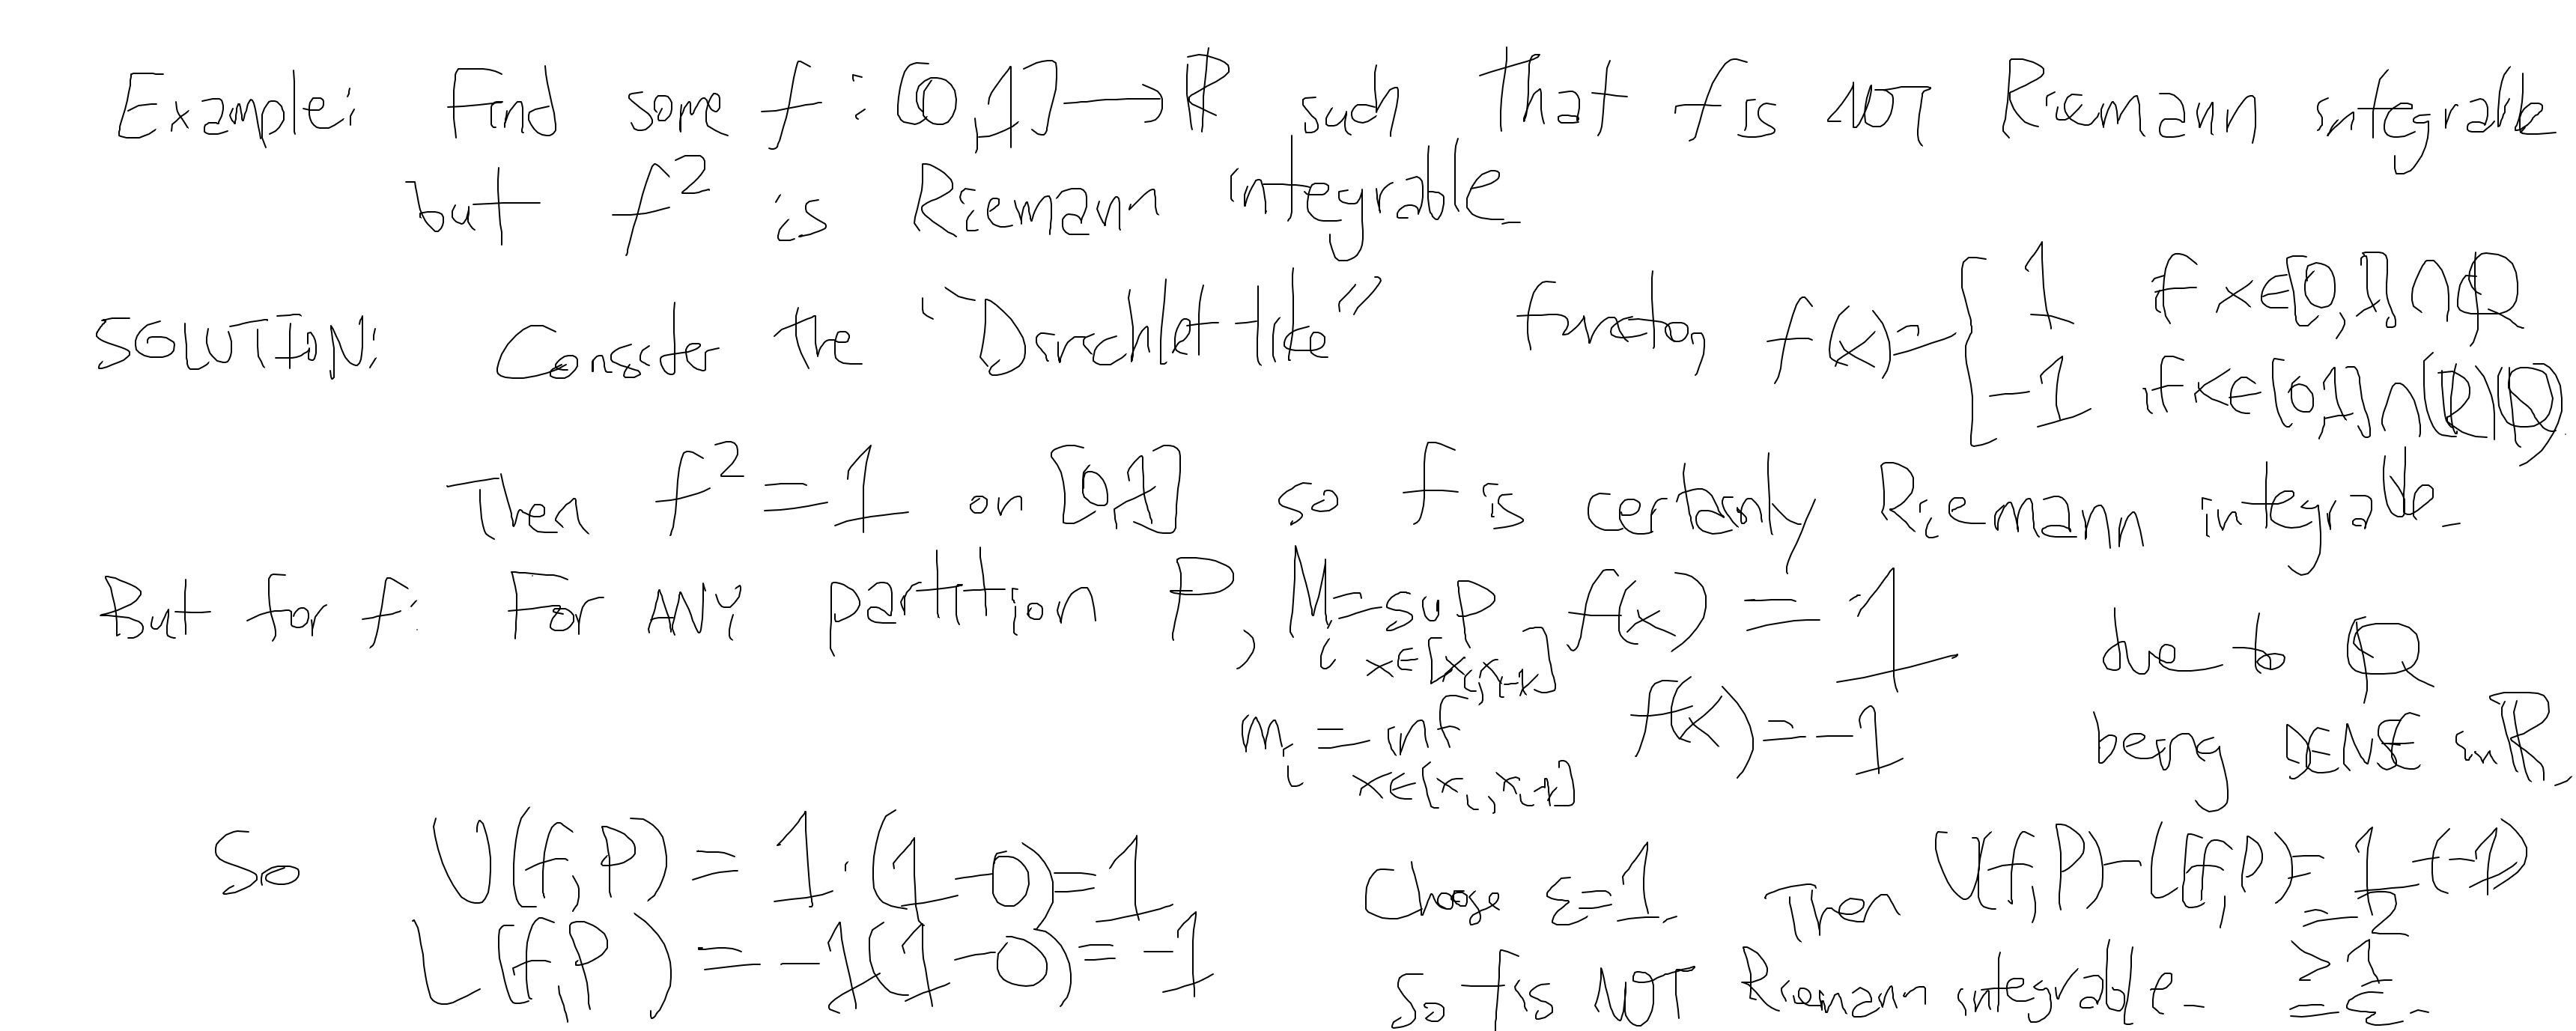 Example: Find some f : [0,1] → ℝ such that f is NOT Riemann integrable
but f² is Riemann integrable.
SOLUTION: Consider the "Dirichlet-like" function f(x) = { 1 if x∈[0,1]∩ℚ
-1 if x∈[0,1]∩(ℝ\ℚ).
Then f² = 1 on [0,1] so f is certainly Riemann integrable.
But for f: For ANY partition P, M_i = sup_{x∈[x_i,x_{i-1}]} f(x) = 1 due to ℚ
m_i = inf_{x∈[x_i,x_{i-1}]} f(x) = -1 being DENSE in ℝ.
So U(f,P) = 1·(1-0) = 1
L(f,P) = -1(1-0) = -1
Choose ε=1. Then U(f,P)-L(f,P) = 1-(-1)
= 2
≥ 1
= ε.
So f is NOT Riemann integrable.